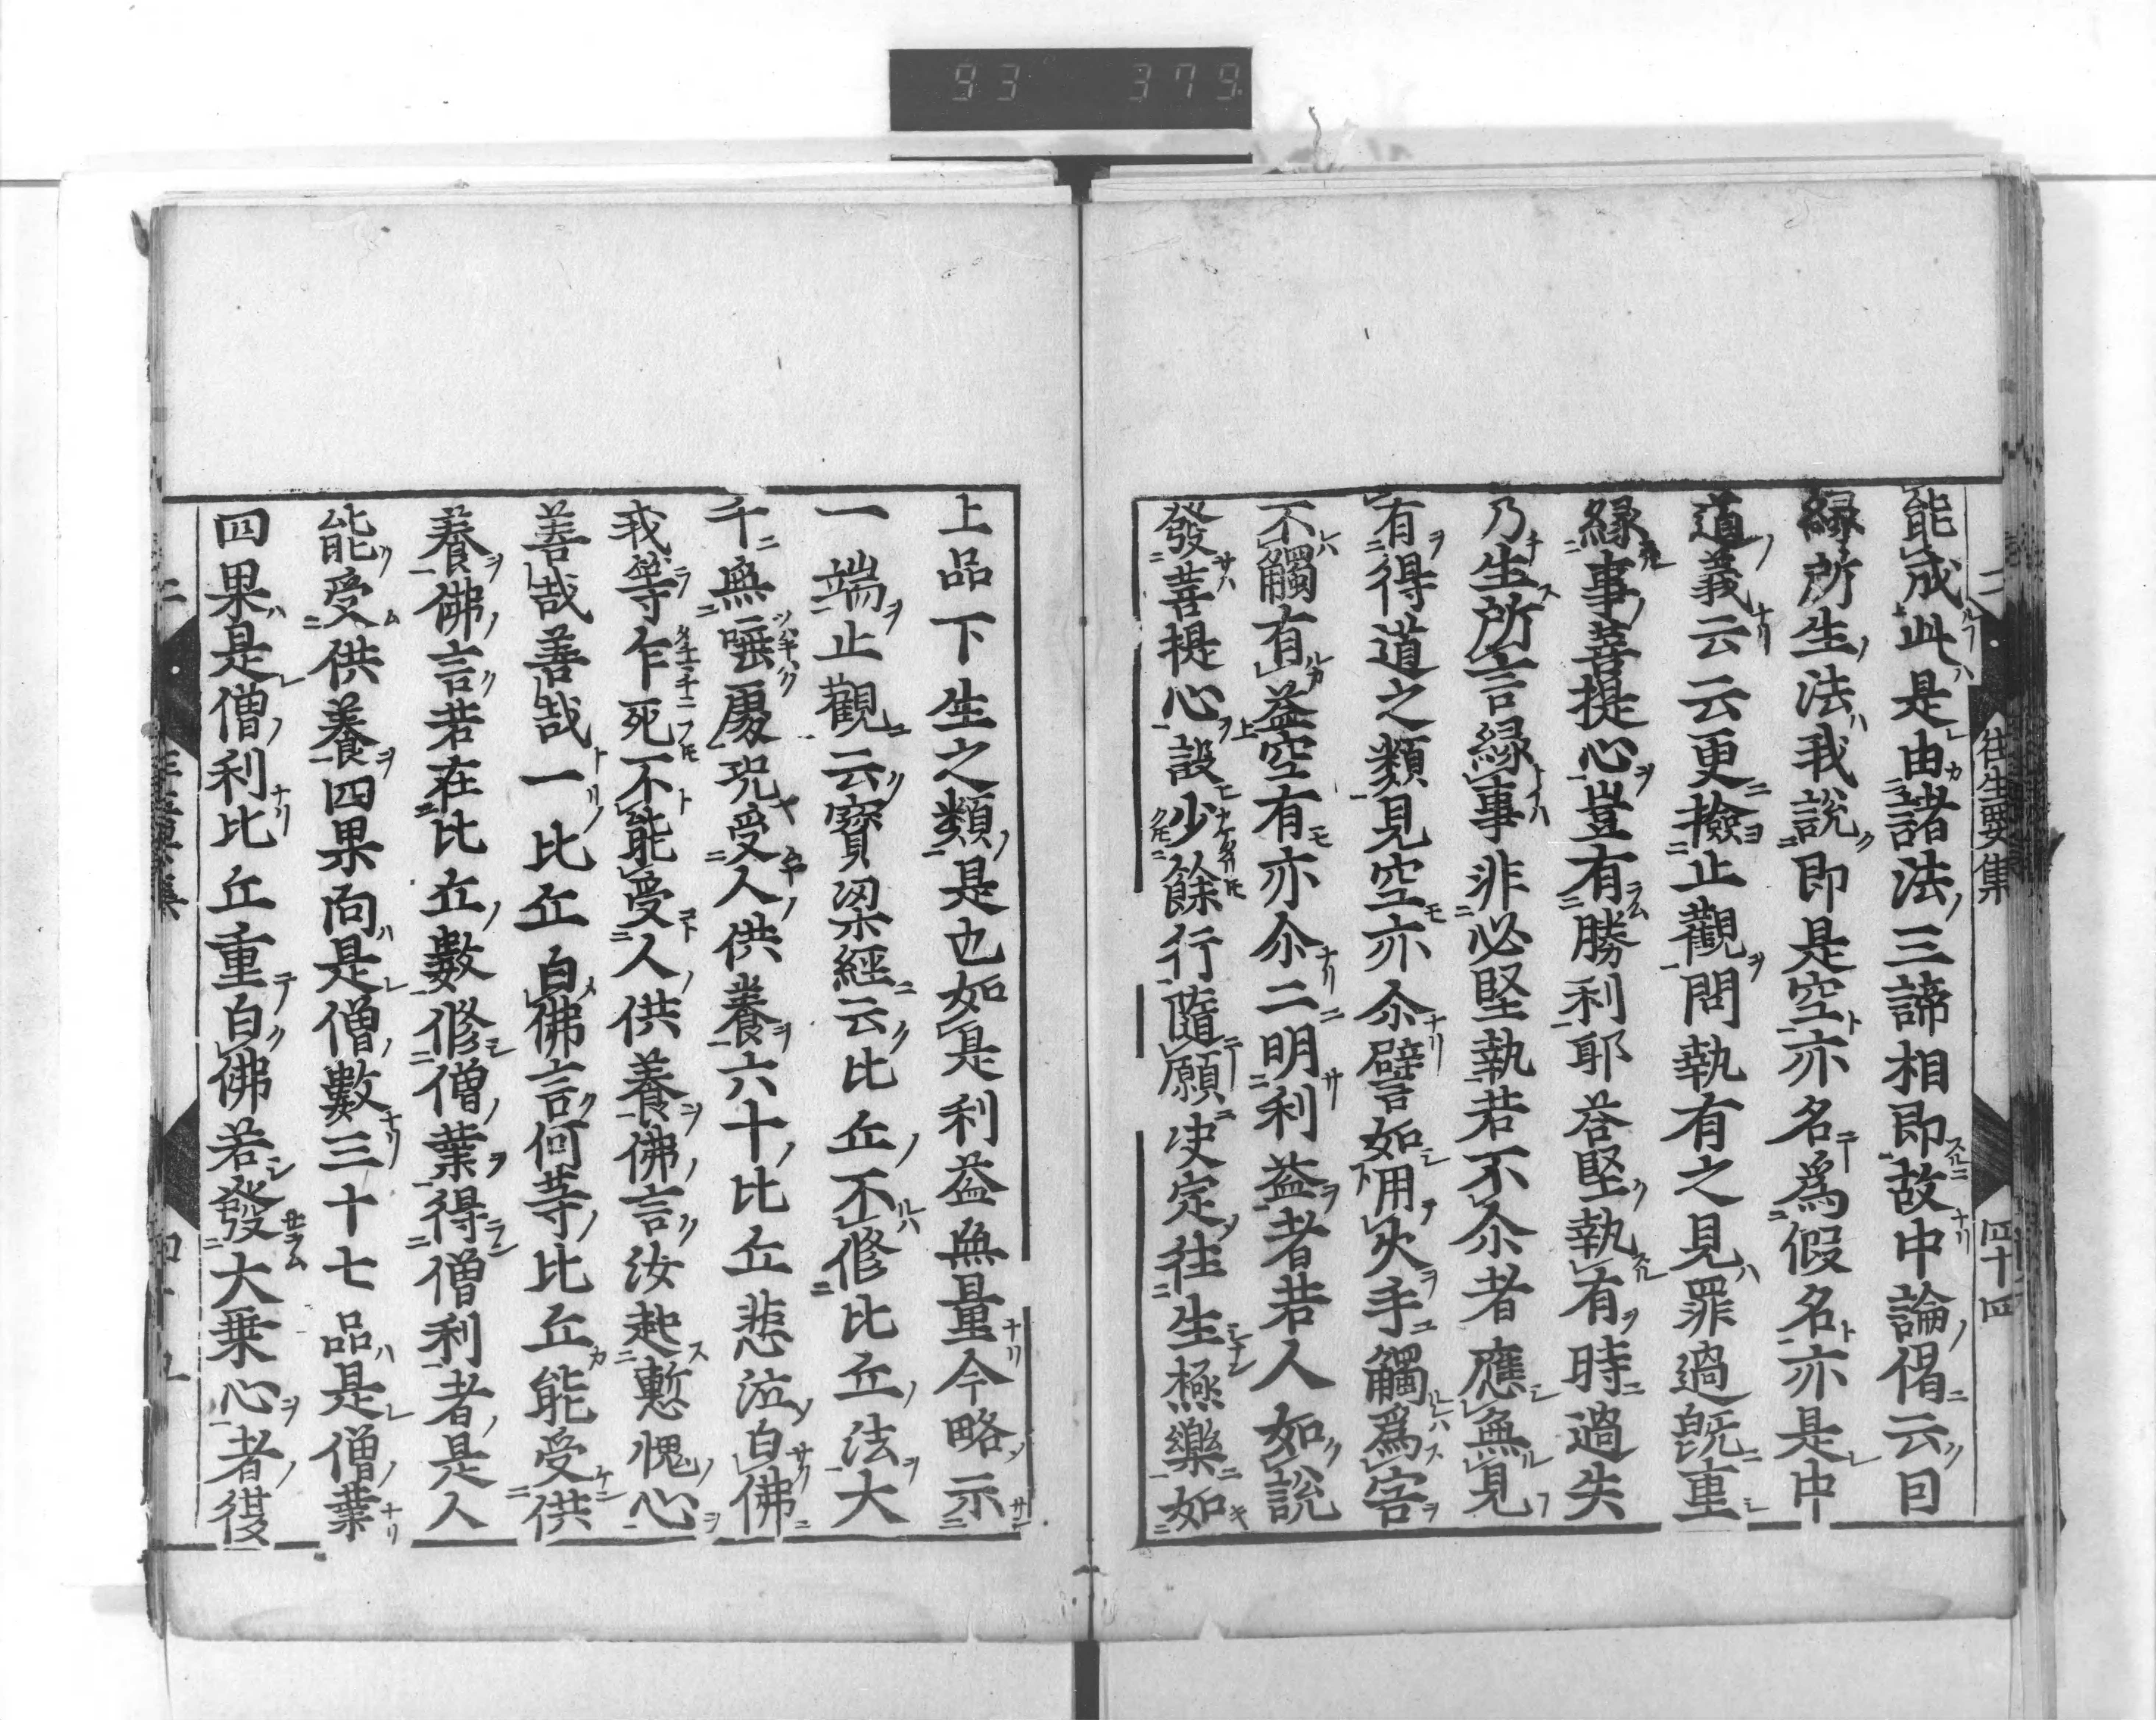 93 379
二 往生要集 四十四
能成此是由諸法三諦相即故中論偈云因
縁所生法我説即是空亦名爲假名亦是中
道義云云更撿止觀問執有之見罪過既重
縁事菩提心豈有勝利耶荅堅執有時過失
乃生所言縁事非必堅執若不尒者應無見
有得道之類見空亦尒譬如用火手觸爲害
不觸有益空有亦尒二明利益者若人如說
發菩提心設少餘行隨願決定往生極樂如
上品下生之類是也如是利益無量今略示
一端止觀云寳梁經云比丘不修比丘法大
千無唾處況受人供養六十比丘悲泣白佛
我等乍死不能受人供養佛言汝起慙愧心
善哉善哉一比丘白佛言何等比丘能受供
養佛言若在比丘數修僧業得僧利者是人
能受供養四果向是僧數三十七品是僧業
四果是僧利比丘重白佛若發大乗心者復